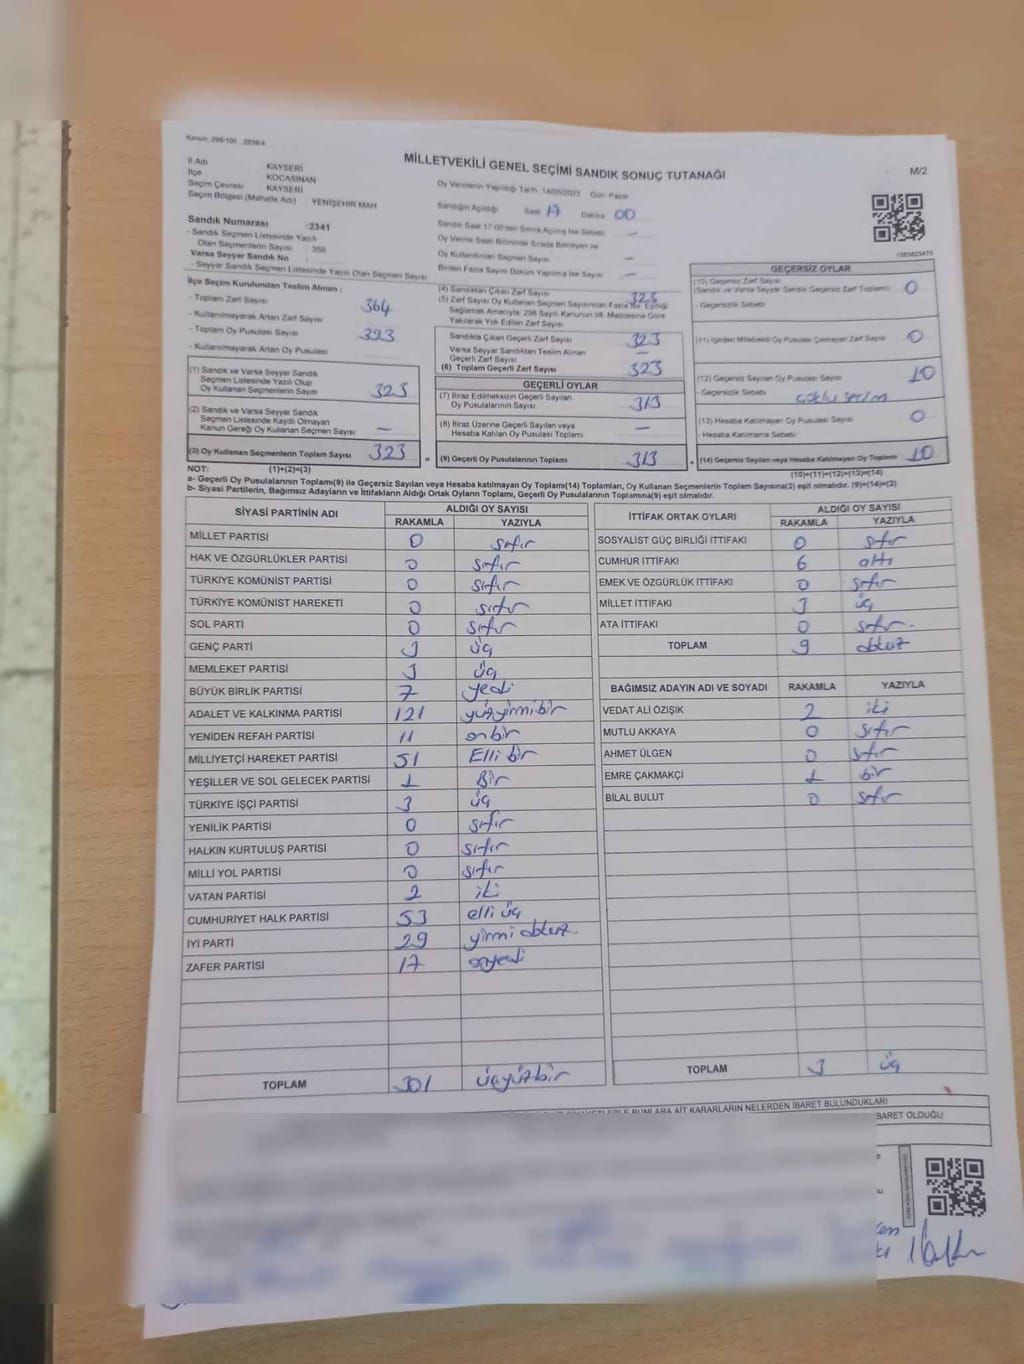 Kanun: 298/105
MİLLETVEKİLİ GENEL SEÇİMİ SANDIK SONUÇ TUTANAĞI
M/2
İl Adı KAYSERİ
İlçe KOCASİNAN
Seçim Çevresi KAYSERİ
Seçim Bölgesi (Mahalle Adı) YENİŞEHİR MAH
Oy Vermenin Yapıldığı Tarih: 14/05/2023 Gün: Pazar
Sandığın Açıldığı Saat 17 Dakika 00
Sandık Numarası :2341
- Sandık Seçmen Listesinde Yazılı
Olan Seçmenlerin Sayısı
Varsa Seyyar Sandık No
- Seyyar Sandık Seçmen Listesinde Yazılı Olan Seçmen Sayısı
Sandık Saat 17.00'den Sonra Açılmış İse Sebebi —
Oy Verme Saati Bitiminde Sırada Bekleyen ve
Oy Kullandırılan Seçmen Sayısı —
Birden Fazla Sayım Döküm Yapılmış İse Sayısı —
1083623475
İlçe Seçim Kurulundan Teslim Alınan :
- Toplam Zarf Sayısı 364
- Kullanılmayarak Artan Zarf Sayısı
- Toplam Oy Pusulası Sayısı 393
- Kullanılmayarak Artan Oy Pusulası
(1) Sandık ve Varsa Seyyar Sandık
Seçmen Listesinde Yazılı Olup
Oy Kullanan Seçmenlerin Sayısı 323
(2) Sandık ve Varsa Seyyar Sandık
Seçmen Listesinde Kayıtlı Olmayan
Kanun Gereği Oy Kullanan Seçmen Sayısı —
(3) Oy Kullanan Seçmenlerin Toplam Sayısı 323
(4) Sandıktan Çıkan Zarf Sayısı 323
(5) Zarf Sayısı Oy Kullanan Seçmen Sayısından Fazla İse, Eşitliği
Sağlamak Amacıyla; 298 Sayılı Kanunun 98. Maddesine Göre
Yakılarak Yok Edilen Zarf Sayısı
Sandıkta Çıkan Geçerli Zarf Sayısı 323
Varsa Seyyar Sandıktan Teslim Alınan
Geçerli Zarf Sayısı —
(6) Toplam Geçerli Zarf Sayısı 323
GEÇERLİ OYLAR
(7) İtiraz Edilmeksizin Geçerli Sayılan
Oy Pusulalarının Sayısı 313
(8) İtiraz Üzerine Geçerli Sayılan veya
Hesaba Katılan Oy Pusulası Toplamı —
= (9) Geçerli Oy Pusulalarının Toplamı 313
GEÇERSİZ OYLAR
(10) Geçersiz Zarf Sayısı
(Sandık ve Varsa Seyyar Sandık Geçersiz Zarf Toplamı) 0
- Geçersizlik Sebebi
(11) İçinden Milletvekili Oy Pusulası Çıkmayan Zarf Sayısı 0
(12) Geçersiz Sayılan Oy Pusulası Sayısı 10
- Geçersizlik Sebebi çoklu seçim
(13) Hesaba Katılmayan Oy Pusulası Sayısı 0
- Hesaba Katılmama Sebebi
+ (14) Geçersiz Sayılan veya Hesaba Katılmayan Oy Toplamı 10
NOT: (1)+(2)=(3) (10)+(11)+(12)+(13)=(14)
a- Geçerli Oy Pusulalarının Toplamı(9) ile Geçersiz Sayılan veya Hesaba katılmayan Oy Toplamı(14) Toplamları, Oy Kullanan Seçmenlerin Toplam Sayısına(3) eşit olmalıdır. (9)+(14)=(3)
b- Siyasi Partilerin, Bağımsız Adayların ve İttifakların Aldığı Ortak Oyların Toplamı, Geçerli Oy Pusulalarının Toplamına(9) eşit olmalıdır.
SİYASİ PARTİNİN ADI ALDIĞI OY SAYISI
RAKAMLA YAZIYLA
MİLLET PARTİSİ 0 sıfır
HAK VE ÖZGÜRLÜKLER PARTİSİ 0 sıfır
TÜRKİYE KOMÜNİST PARTİSİ 0 sıfır
TÜRKİYE KOMÜNİST HAREKETİ 0 sıfır
SOL PARTİ 0 sıfır
GENÇ PARTİ 3 üç
MEMLEKET PARTİSİ 3 üç
BÜYÜK BİRLİK PARTİSİ 7 yedi
ADALET VE KALKINMA PARTİSİ 121 yüzyirmibir
YENİDEN REFAH PARTİSİ 11 onbir
MİLLİYETÇİ HAREKET PARTİSİ 51 Elli bir
YEŞİLLER VE SOL GELECEK PARTİSİ 1 Bir
TÜRKİYE İŞÇİ PARTİSİ 3 üç
YENİLİK PARTİSİ 0 sıfır
HALKIN KURTULUŞ PARTİSİ 0 sıfır
MİLLİ YOL PARTİSİ 0 sıfır
VATAN PARTİSİ 2 iki
CUMHURİYET HALK PARTİSİ 53 elli üç
İYİ PARTİ 29 yirmi dokuz.
ZAFER PARTİSİ 17 onyedi
TOPLAM 301 üçyüzbir
İTTİFAK ORTAK OYLARI ALDIĞI OY SAYISI
RAKAMLA YAZIYLA
SOSYALİST GÜÇ BİRLİĞİ İTTİFAKI 0 sıfır
CUMHUR İTTİFAKI 6 altı
EMEK VE ÖZGÜRLÜK İTTİFAKI 0 sıfır
MİLLET İTTİFAKI 3 üç
ATA İTTİFAKI 0 sıfır.
TOPLAM 9 dokuz
BAĞIMSIZ ADAYIN ADI VE SOYADI RAKAMLA YAZIYLA
VEDAT ALİ ÖZIŞIK 2 iki
MUTLU AKKAYA 0 sıfır
AHMET ÜLGEN 0 sıfır
EMRE ÇAKMAKÇİ 1 bir
BİLAL BULUT 0 sıfır
TOPLAM 3 üç
BUNLARA AİT KARARLARIN NELERDEN İBARET BULUNDUKLARI
BARET OLDUĞU